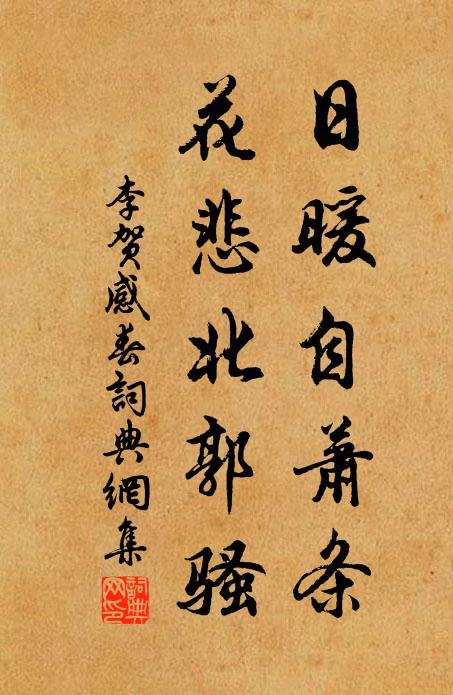 日暖自萧条
花悲北郭骚
李贺感春詞典網集
詞典
网印